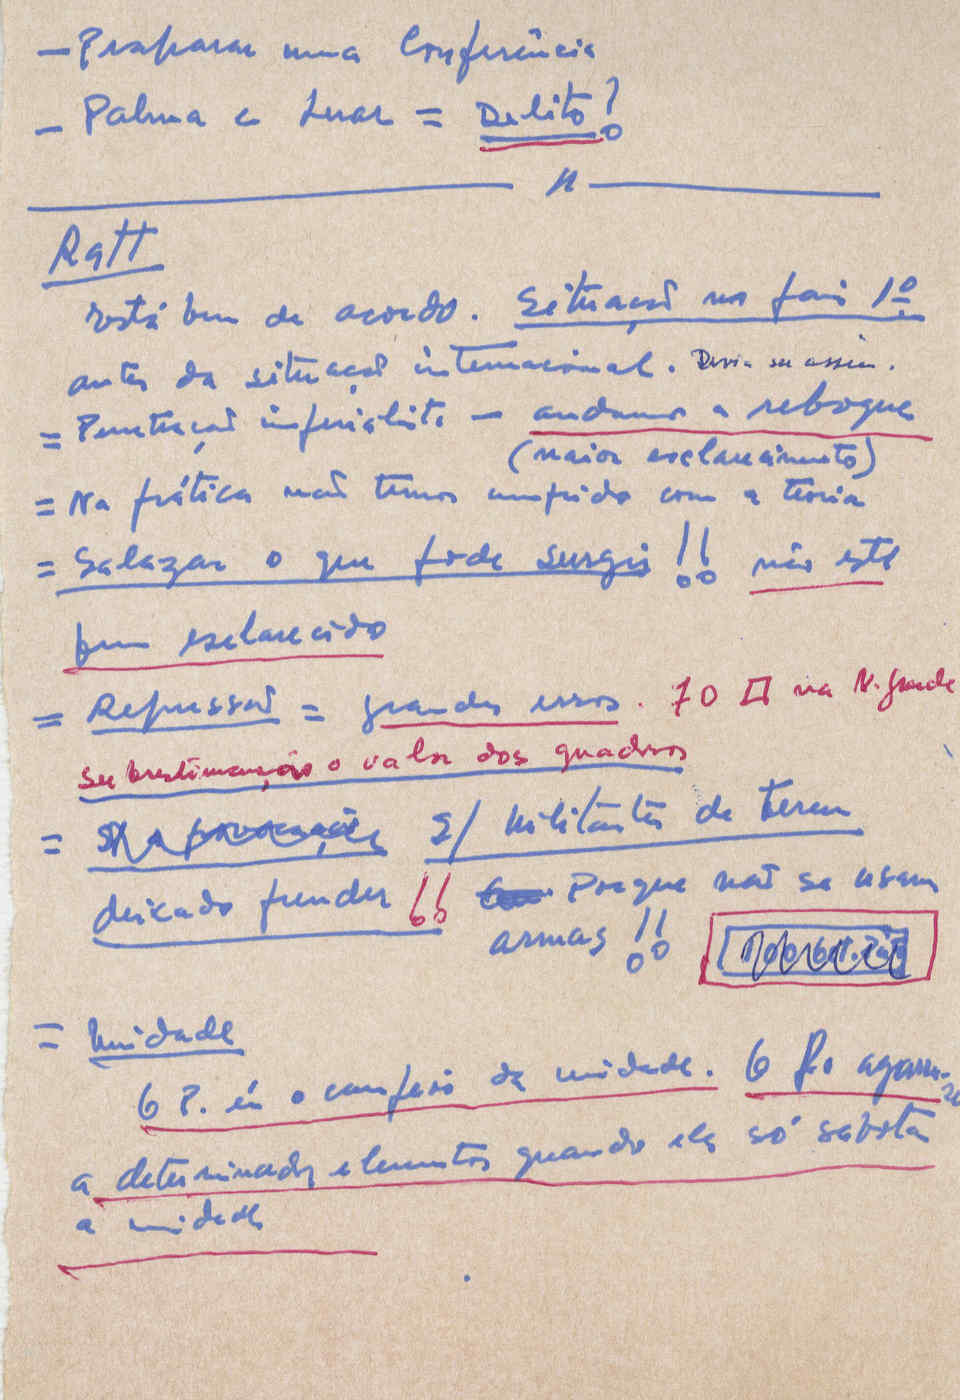 – Preparar uma Conferência
– Palma e Luar = Delito!
Ratt
está bem de acordo. Situação no País 1º
antes da situação internacional. Devia ser assim.
= Penetração imperialista — andamos a reboque
(maior esclarecimento)
= Na prática não temos cumprido com a teoria
= Salazar o que pode surgir!! não está
bem esclarecido
= Repressão = grandes erros. 70 na N. grande
subestimação o valor dos quadros
= S/ Militantes de terem
deixado prender!! Porque não se usam
armas!!
= Unidade
O P. é o campeão da unidade. O P.
a determinados elementos quando eles só sabotam
a unidade